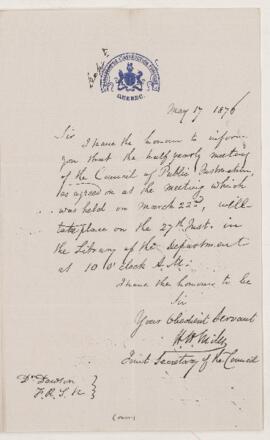 DEPARTMENT OF PUBLIC INSTRUCTION
QUEBEC.
May 17 1876
Sir
I have the honour to inform
you that the half yearly meeting
of the Council of Public Instruction,
as agreed on at the meeting which
was held on March 22d, will
take place on the 27th Inst. in
the Library of the Department
at 10 O'clock A.M:
I have the honour to be
Sir
Your Obedient Servant
H. H. Miles
Joint Secretary of the Council
Dr Dawson
F.R.S. &c
(over)